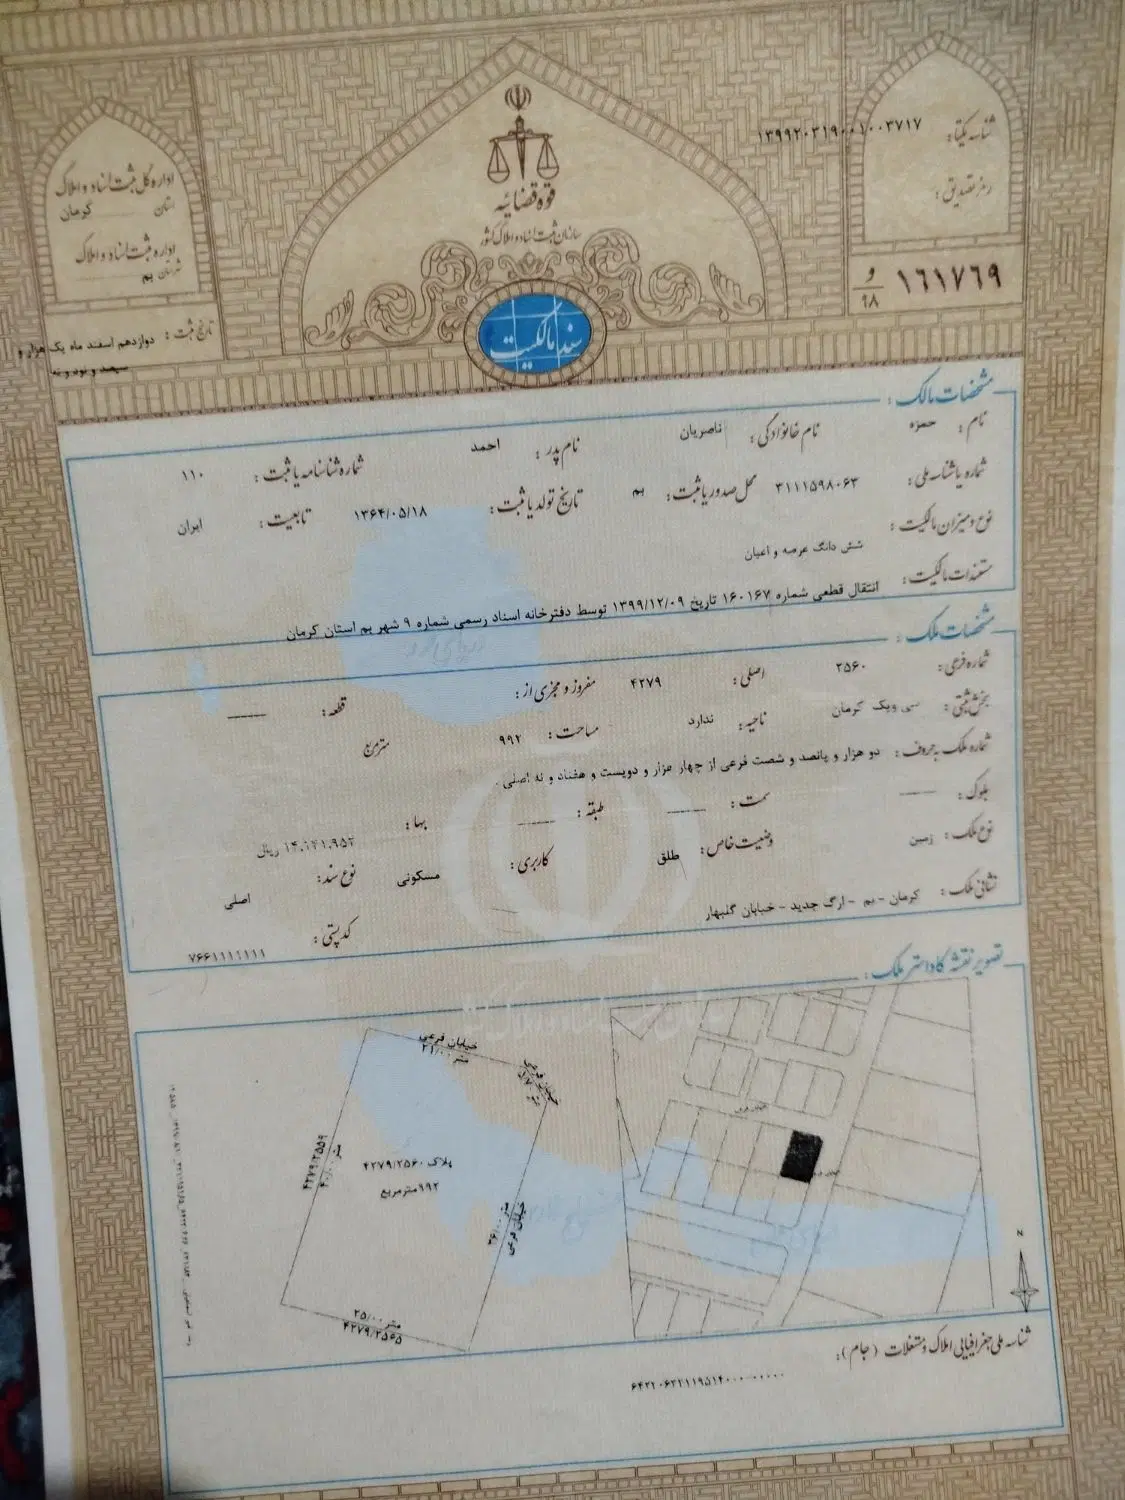 شناسه یکتا: ۱۳۹۹۲۰۳۱۹۰۰۱۰۰۳۷۱۷
رمز تصدیق:
۱۶۱۷۶۹ و ۹۸
قوه قضائیه
سازمان ثبت اسناد و املاک کشور
سند مالکیت
اداره کل ثبت اسناد و املاک
استان کرمان
اداره ثبت اسناد و املاک
شهرستان بم
تاریخ ثبت: دوازدهم اسفند ماه یک هزار و
سیصد و نود و نه
مشخصات مالک:
نام: حمزه نام خانوادگی: ناصریان نام پدر: احمد شماره شناسنامه یا ثبت: ۱۱۰
شماره یا شناسه ملی: ۳۱۱۱۵۹۸۰۶۳ محل صدور یا ثبت: بم تاریخ تولد یا ثبت: ۱۳۶۴/۰۵/۱۸ تابعیت: ایران
نوع و میزان مالکیت: شش دانگ عرصه و اعیان
مستندات مالکیت: انتقال قطعی شماره ۱۶۰۱۶۷ تاریخ ۱۳۹۹/۱۲/۰۹ توسط دفترخانه اسناد رسمی شماره ۹ شهر بم استان کرمان
مشخصات ملک:
شماره فرعی: ۲۵۶۰ اصلی: ۴۲۷۹ مفروز و مجزی از: قطعه: ——
بخش ثبتی: سی ویک کرمان ناحیه: ندارد مساحت: ۹۹۲ مترمربع
شماره ملک به حروف: دو هزار و پانصد و شصت فرعی از چهار هزار و دویست و هفتاد و نه اصلی .
بلوک: —— سمت: —— طبقه: —— بها: ۱۴،۱۴۱،۹۵۲ ریالی
نوع ملک: زمین وضعیت خاص: طلق کاربری: مسکونی نوع سند: اصلی
نشانی ملک: کرمان - بم - ارگ جدید - خیابان گلبهار کد پستی: ۷۶۶۱۱۱۱۱۱۱
تصویر نقشه کاداستر ملک:
خیابان فرعی
۲۱/۰۰ متر
۴۲۷۹/۲۵۵۹
۴۰/۰۰ متر
پلاک ۴۲۷۹/۲۵۶۰
۹۹۲مترمربع
۳۶/۰۰ متر
خیابان فرعی
۲۵/۰۰ متر
۴۲۷۹/۲۵۶۵
N
شناسه ملی جغرافیایی املاک و مستغلات (جام):